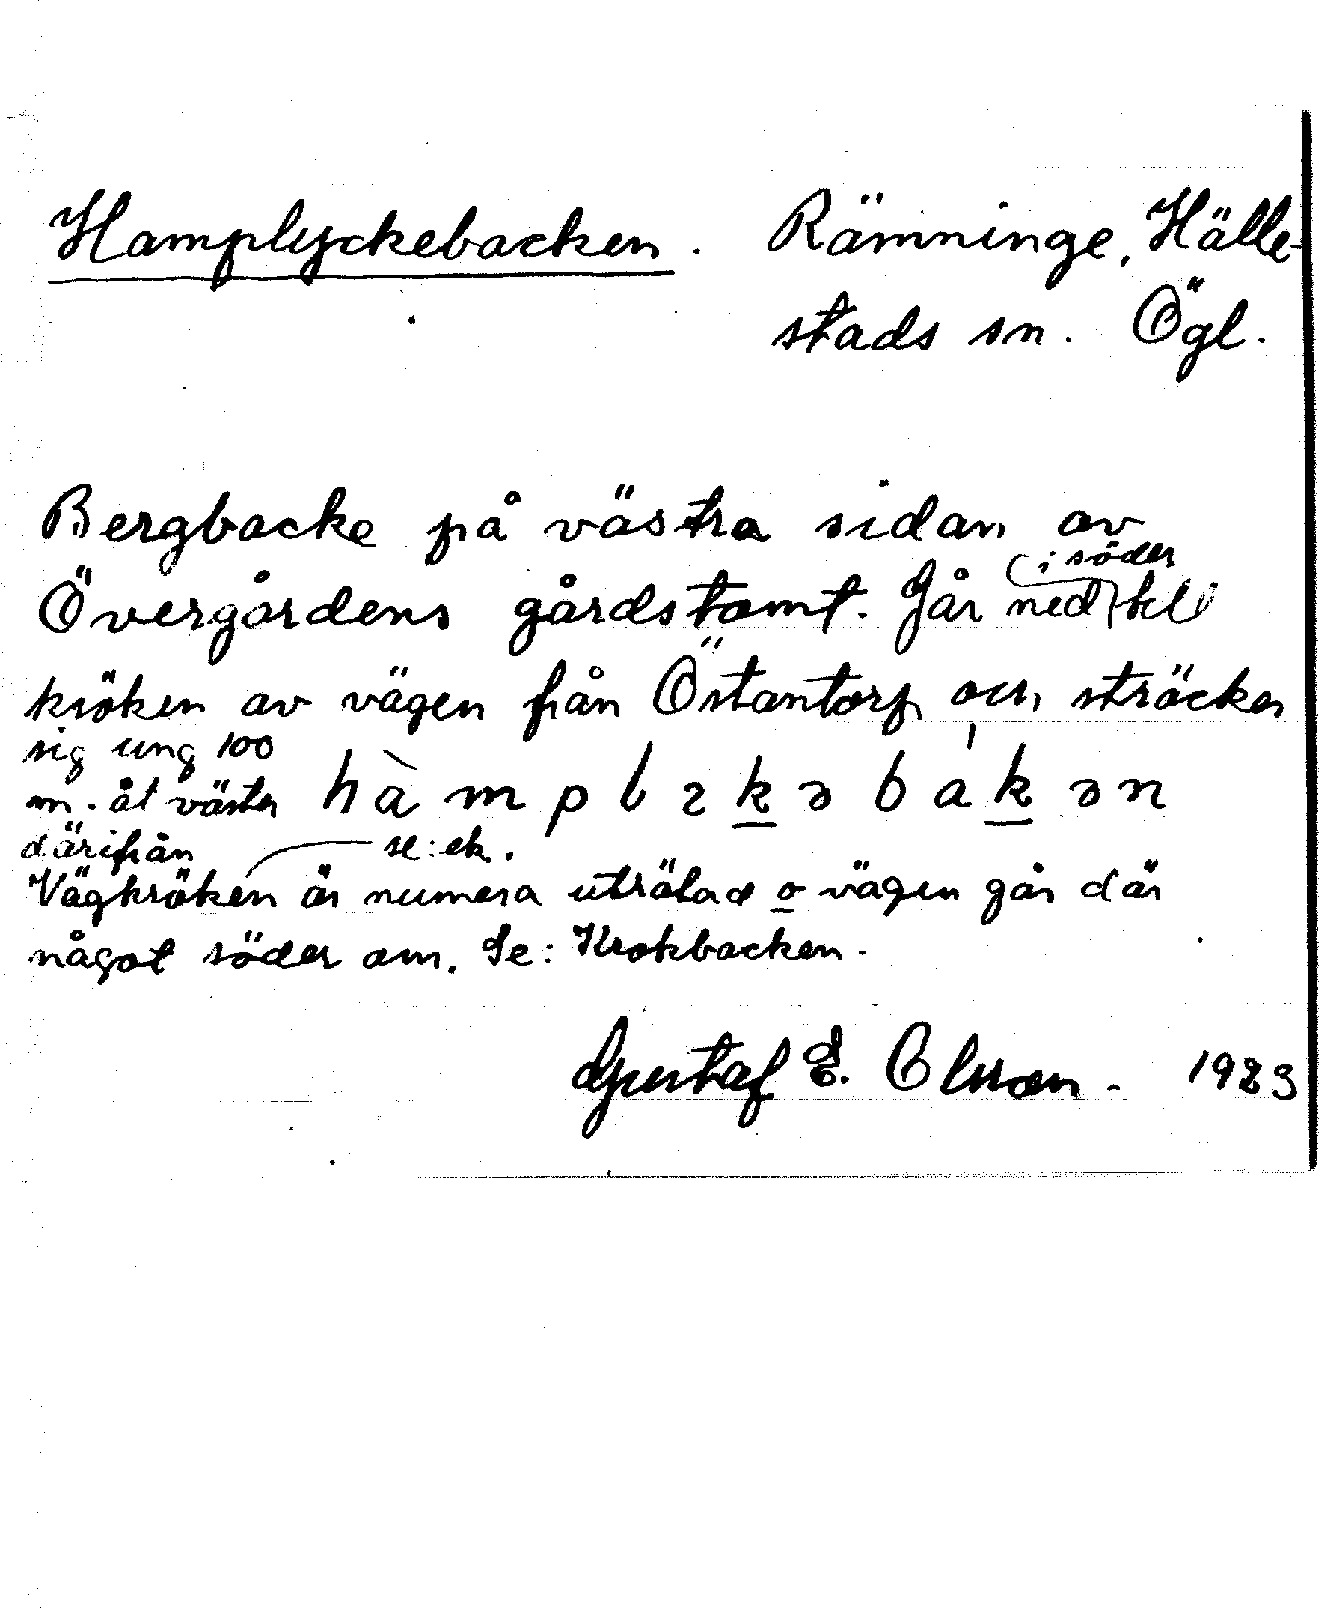 Hamplyckebacken. Rämninge, Hälle-
stads sn. Ögl.
Bergbacke på västra sidan av
i söder
Övergårdens gårdstomt. Går ned till
kröken av vägen från Östantorp och sträcker
sig ung 100
m. åt väster hàmplɛkəbákən
därifrån se: ek.
Vägkröken är numera uträtad o vägen går där
något söder om. Se: Krokbacken.
Gustaf E. Olsson. 1983